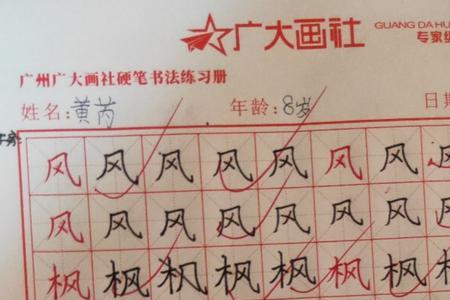 广大画社 GUANG DA HU
专家
广州广大画社硬笔书法练习册
姓名:黄芮 年龄:8岁 日
风 风 风 风 风 风 风
风 风 风 风 风 风 风
枫 枫 枫 枫 枫 枫 枫